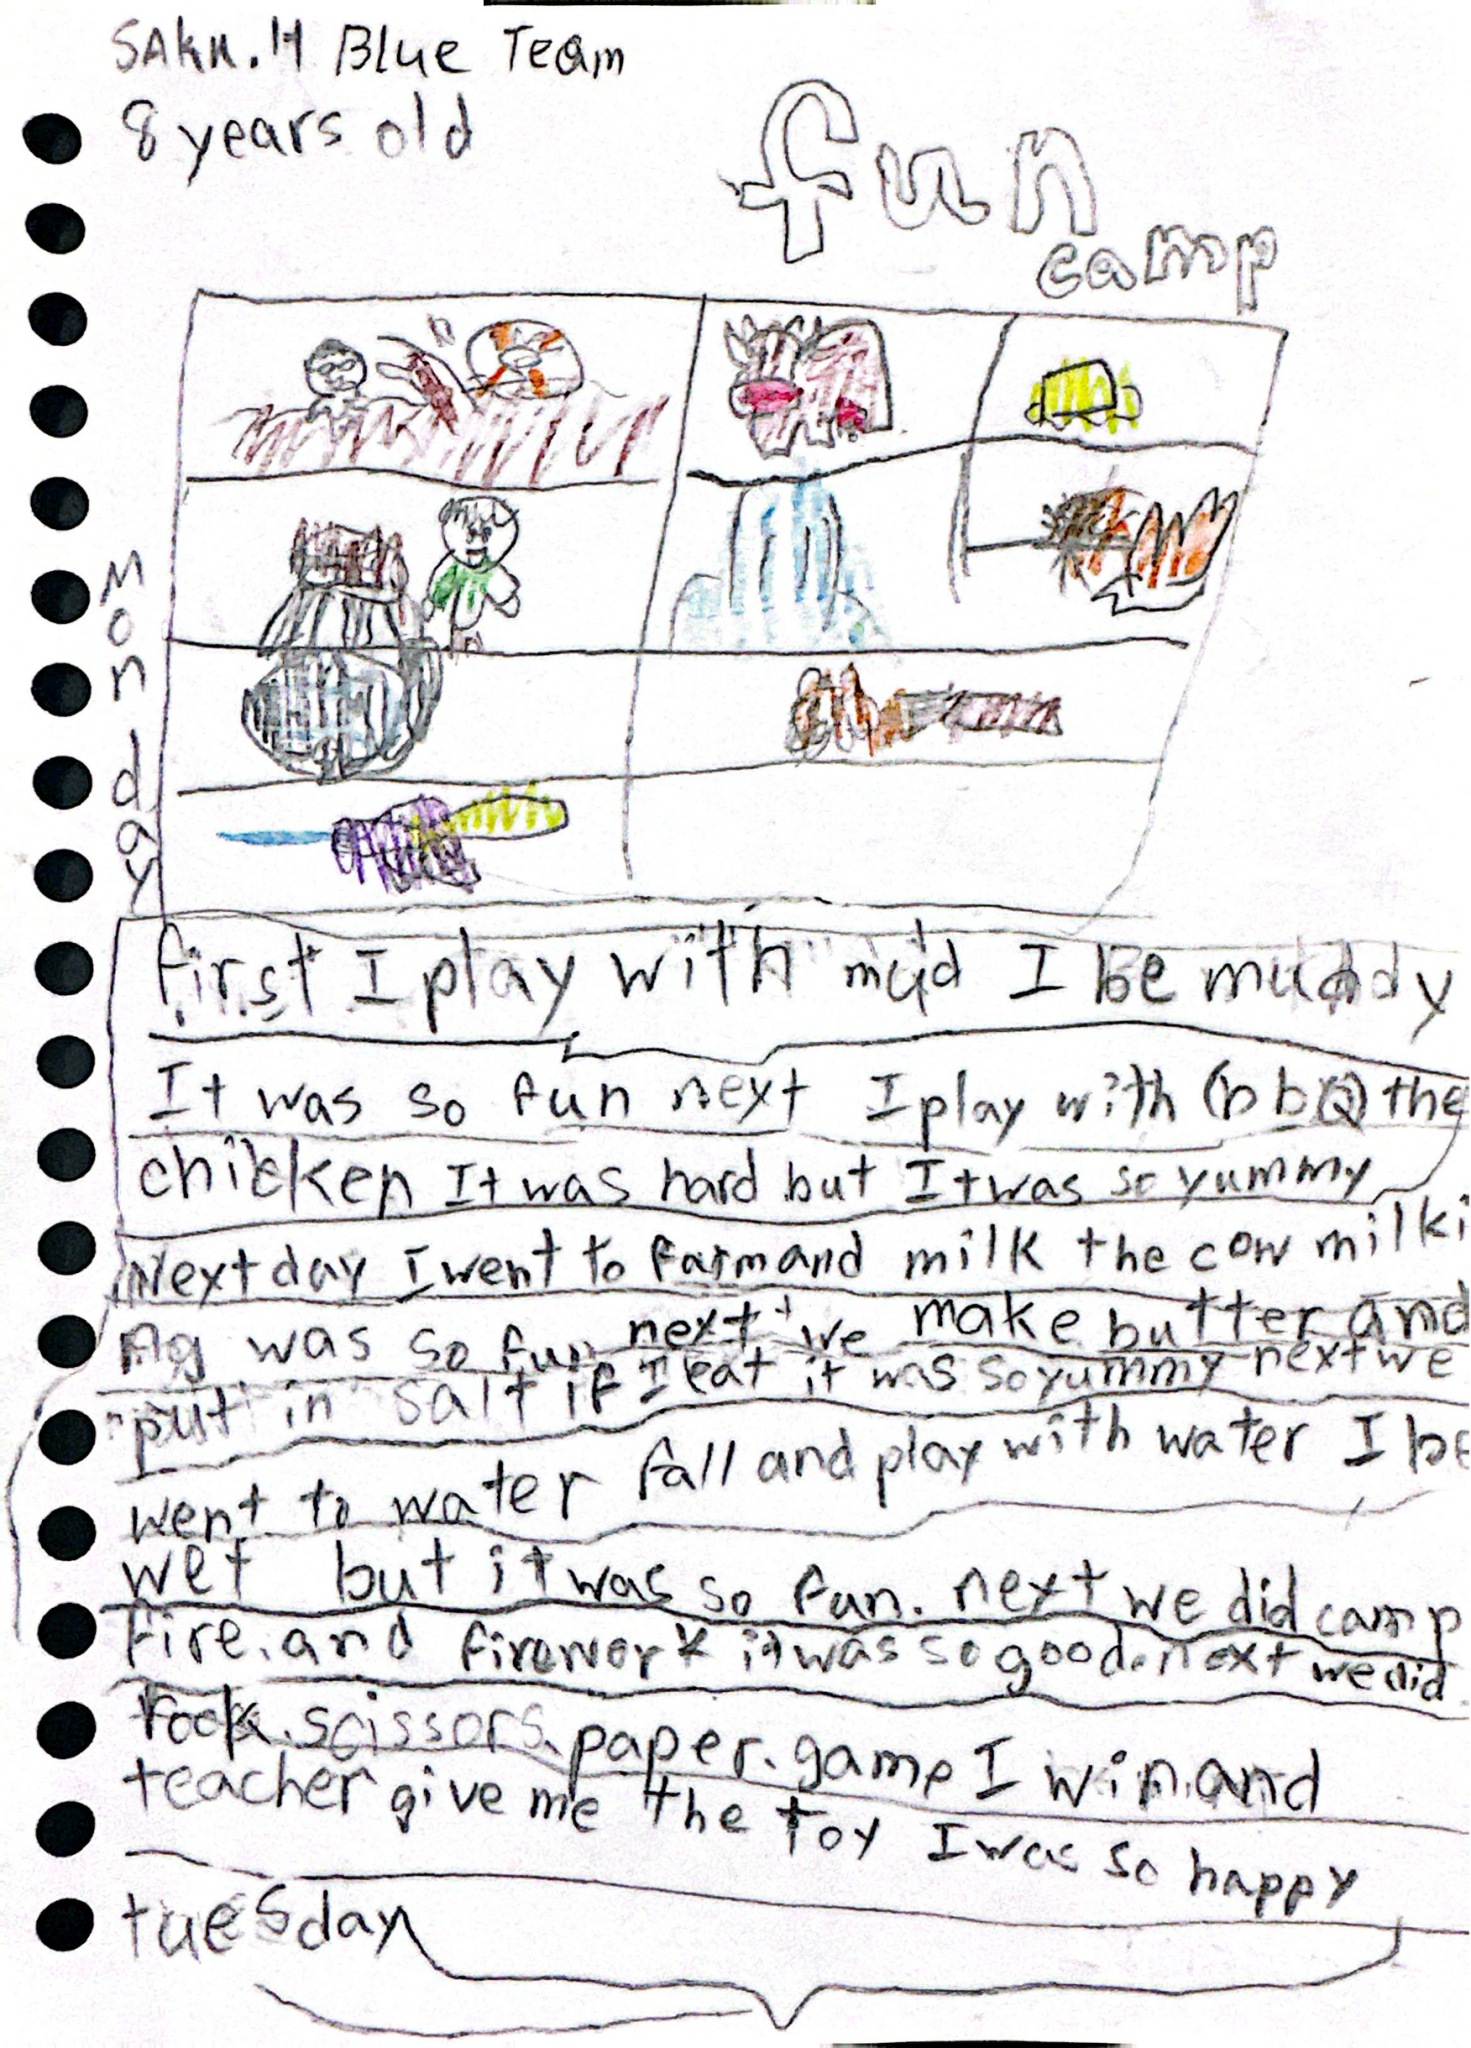 SAKU.H Blue Team
8 years old
fun
camp
Monday
first I play with mud I be muddy
It was so fun next I play with (bbQ) the
chicken It was hard but It was so yummy
Next day I went to farm and milk the cow milki
ng was so fun next we make butter and
put in salt if I eat it was so yummy next we
went to water fall and play with water I be
wet but it was so fun. next we did camp
fire. and firework it was so good. next we did
rock. scissors. paper. game I win. and
teacher give me the toy I was so happy
tuesday